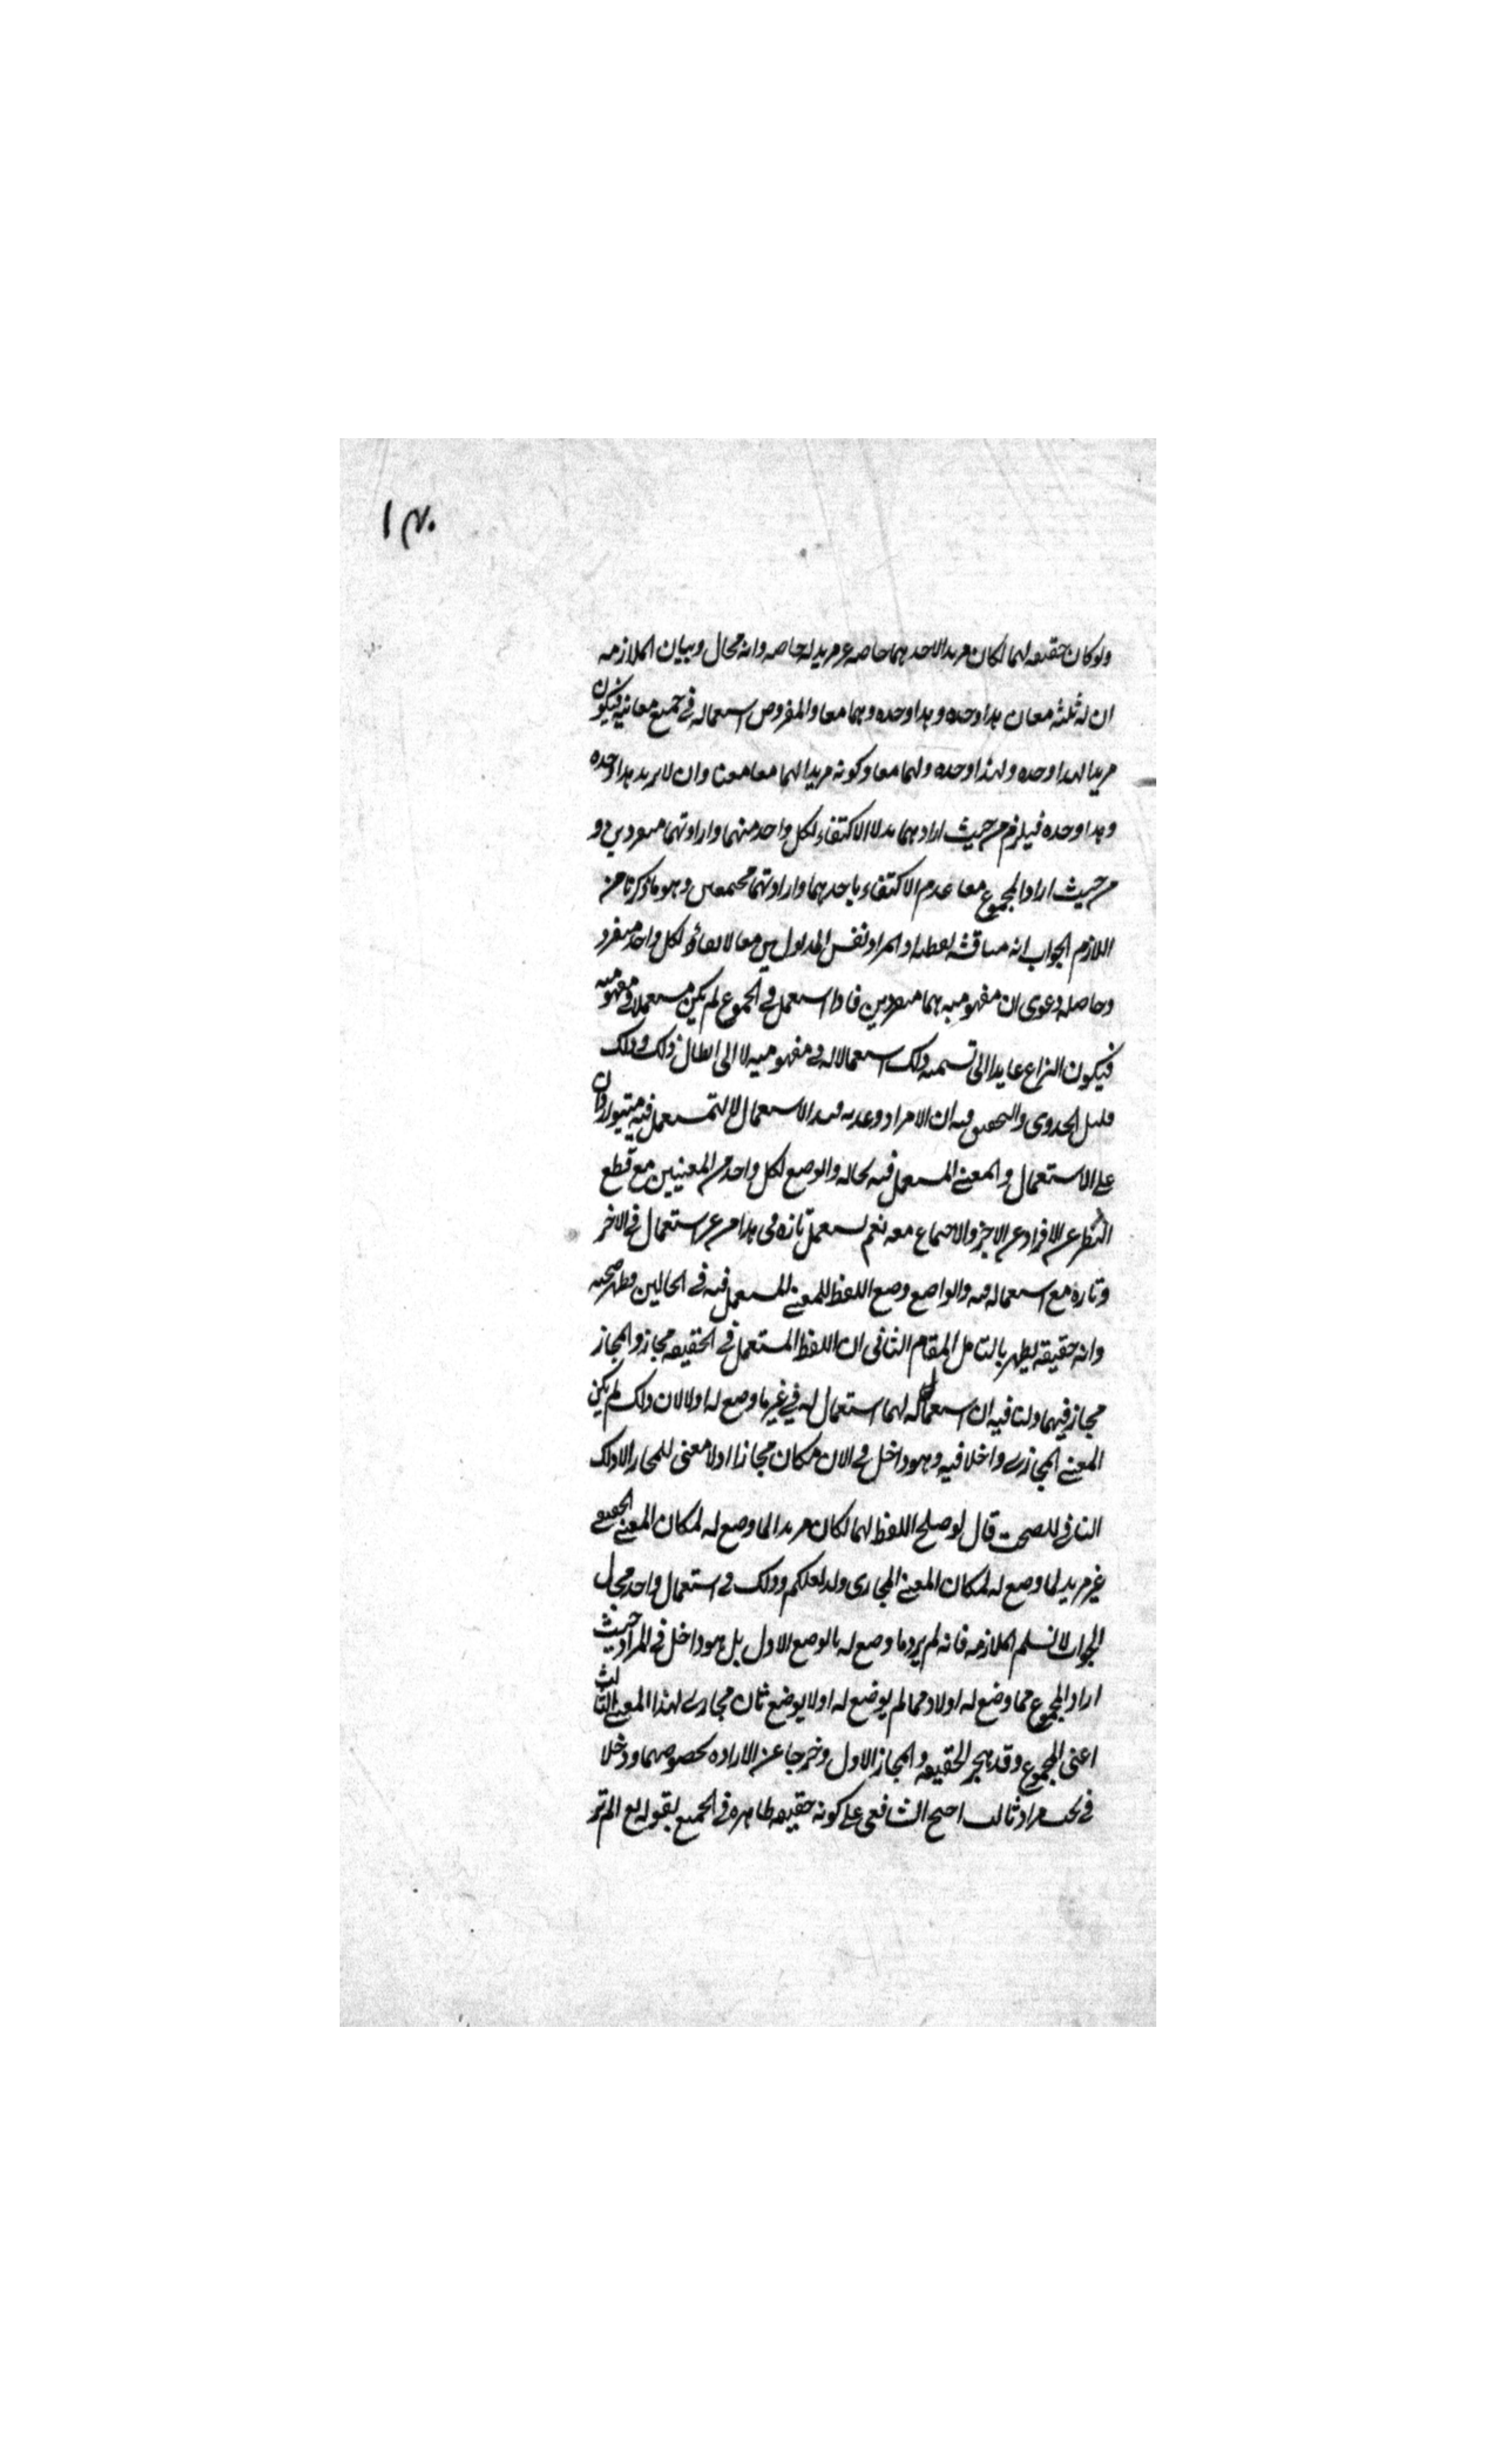 ١٣٠
ولو كان حقيقه لهما لكان مريدا لاحدهما خاصه غير مريد له خاصه وانه محال وبيان الملازمه
ان له ثلثه معان هذا وحده وهذا وحده وهما معا والمفروض استعماله في جميع معانيه فيكون
مريدا لهذا وحده ولهذا وحده ولهما معا وكونه مريدا لهما معا معناه ان لا يريد هذا وحده
وهذا وحده فيلزم من حيث ارادهما بدلا الاكتفاء لكل واحد منهما وارادتهما منفردين و
من حيث اراد المجموع معا عدم الاكتفاء باحدهما وارادتهما مجتمعين وهو ما ذكرنا من
اللازم الجواب انه مناقشه لفظيه اذ المراد نفس المدلولين معا لا بقاؤه لكل واحد منفرد
وحاصله دعوى ان مفهوميه هما منفردين فاذا استعمل في المجموع لم يكن مستعملا في مفهوميه
فيكون النزاع عايدا الى تسميه ذلك استعمالا له في مفهوميه لا الى ابطال ذلك وذلك
قليل الجدوى والتحقيق فيه ان الافراد وعدمه قيد الاستعمال لا للمستعمل فيه فيتواردان
على الاستعمال والمعنى المستعمل فيه بحاله والوضع لكل واحد من المعنيين مع قطع
النظر عن الافراد عن الاخر والاجتماع معه نعم يستعمل تاره في هذا من غير استعمال في الاخر
وتاره مع استعماله فيه والواضع وضع اللفظ للمعنى المستعمل فيه في الحالين فظهر صحته
وانه حقيقه يظهر بالتامل المقام الثاني ان اللفظ المستعمل في الحقيقه مجاز والمجاز
مجاز فيهما ولنا فيه ان استعماله لهما استعمال له في غير ما وضع له اولا لان ذلك لم يكن
المعنى المجازى داخلا فيه وهو داخل في الان فكان مجازا اذ لا معنى للمجاز الا ذلك
النافي للصحت قال لو صلح اللفظ لهما لكان مريدا لما وضع له لمكان المعنى الحقيقي
غير مريد لما وضع له لمكان المعنى المجازى وذلك في استعمال واحد محال
الجواب لا نسلم الملازمه فانه لم يرد ما وضع له بالوضع الاول بل هو داخل في المراد حيث
اراد المجموع مما وضع له اولا ومما لم يوضع له اولا بوضع ثان مجازى لهذا المعنى الثالث
اعنى المجموع وقد هجر الحقيقه والمجاز الاول وخرجا عن الاراده بخصوصهما ودخلا
في تحت مراد ثالث احتج الشافعي على كونه حقيقه ظاهره في الجميع بقوله تع الم تر